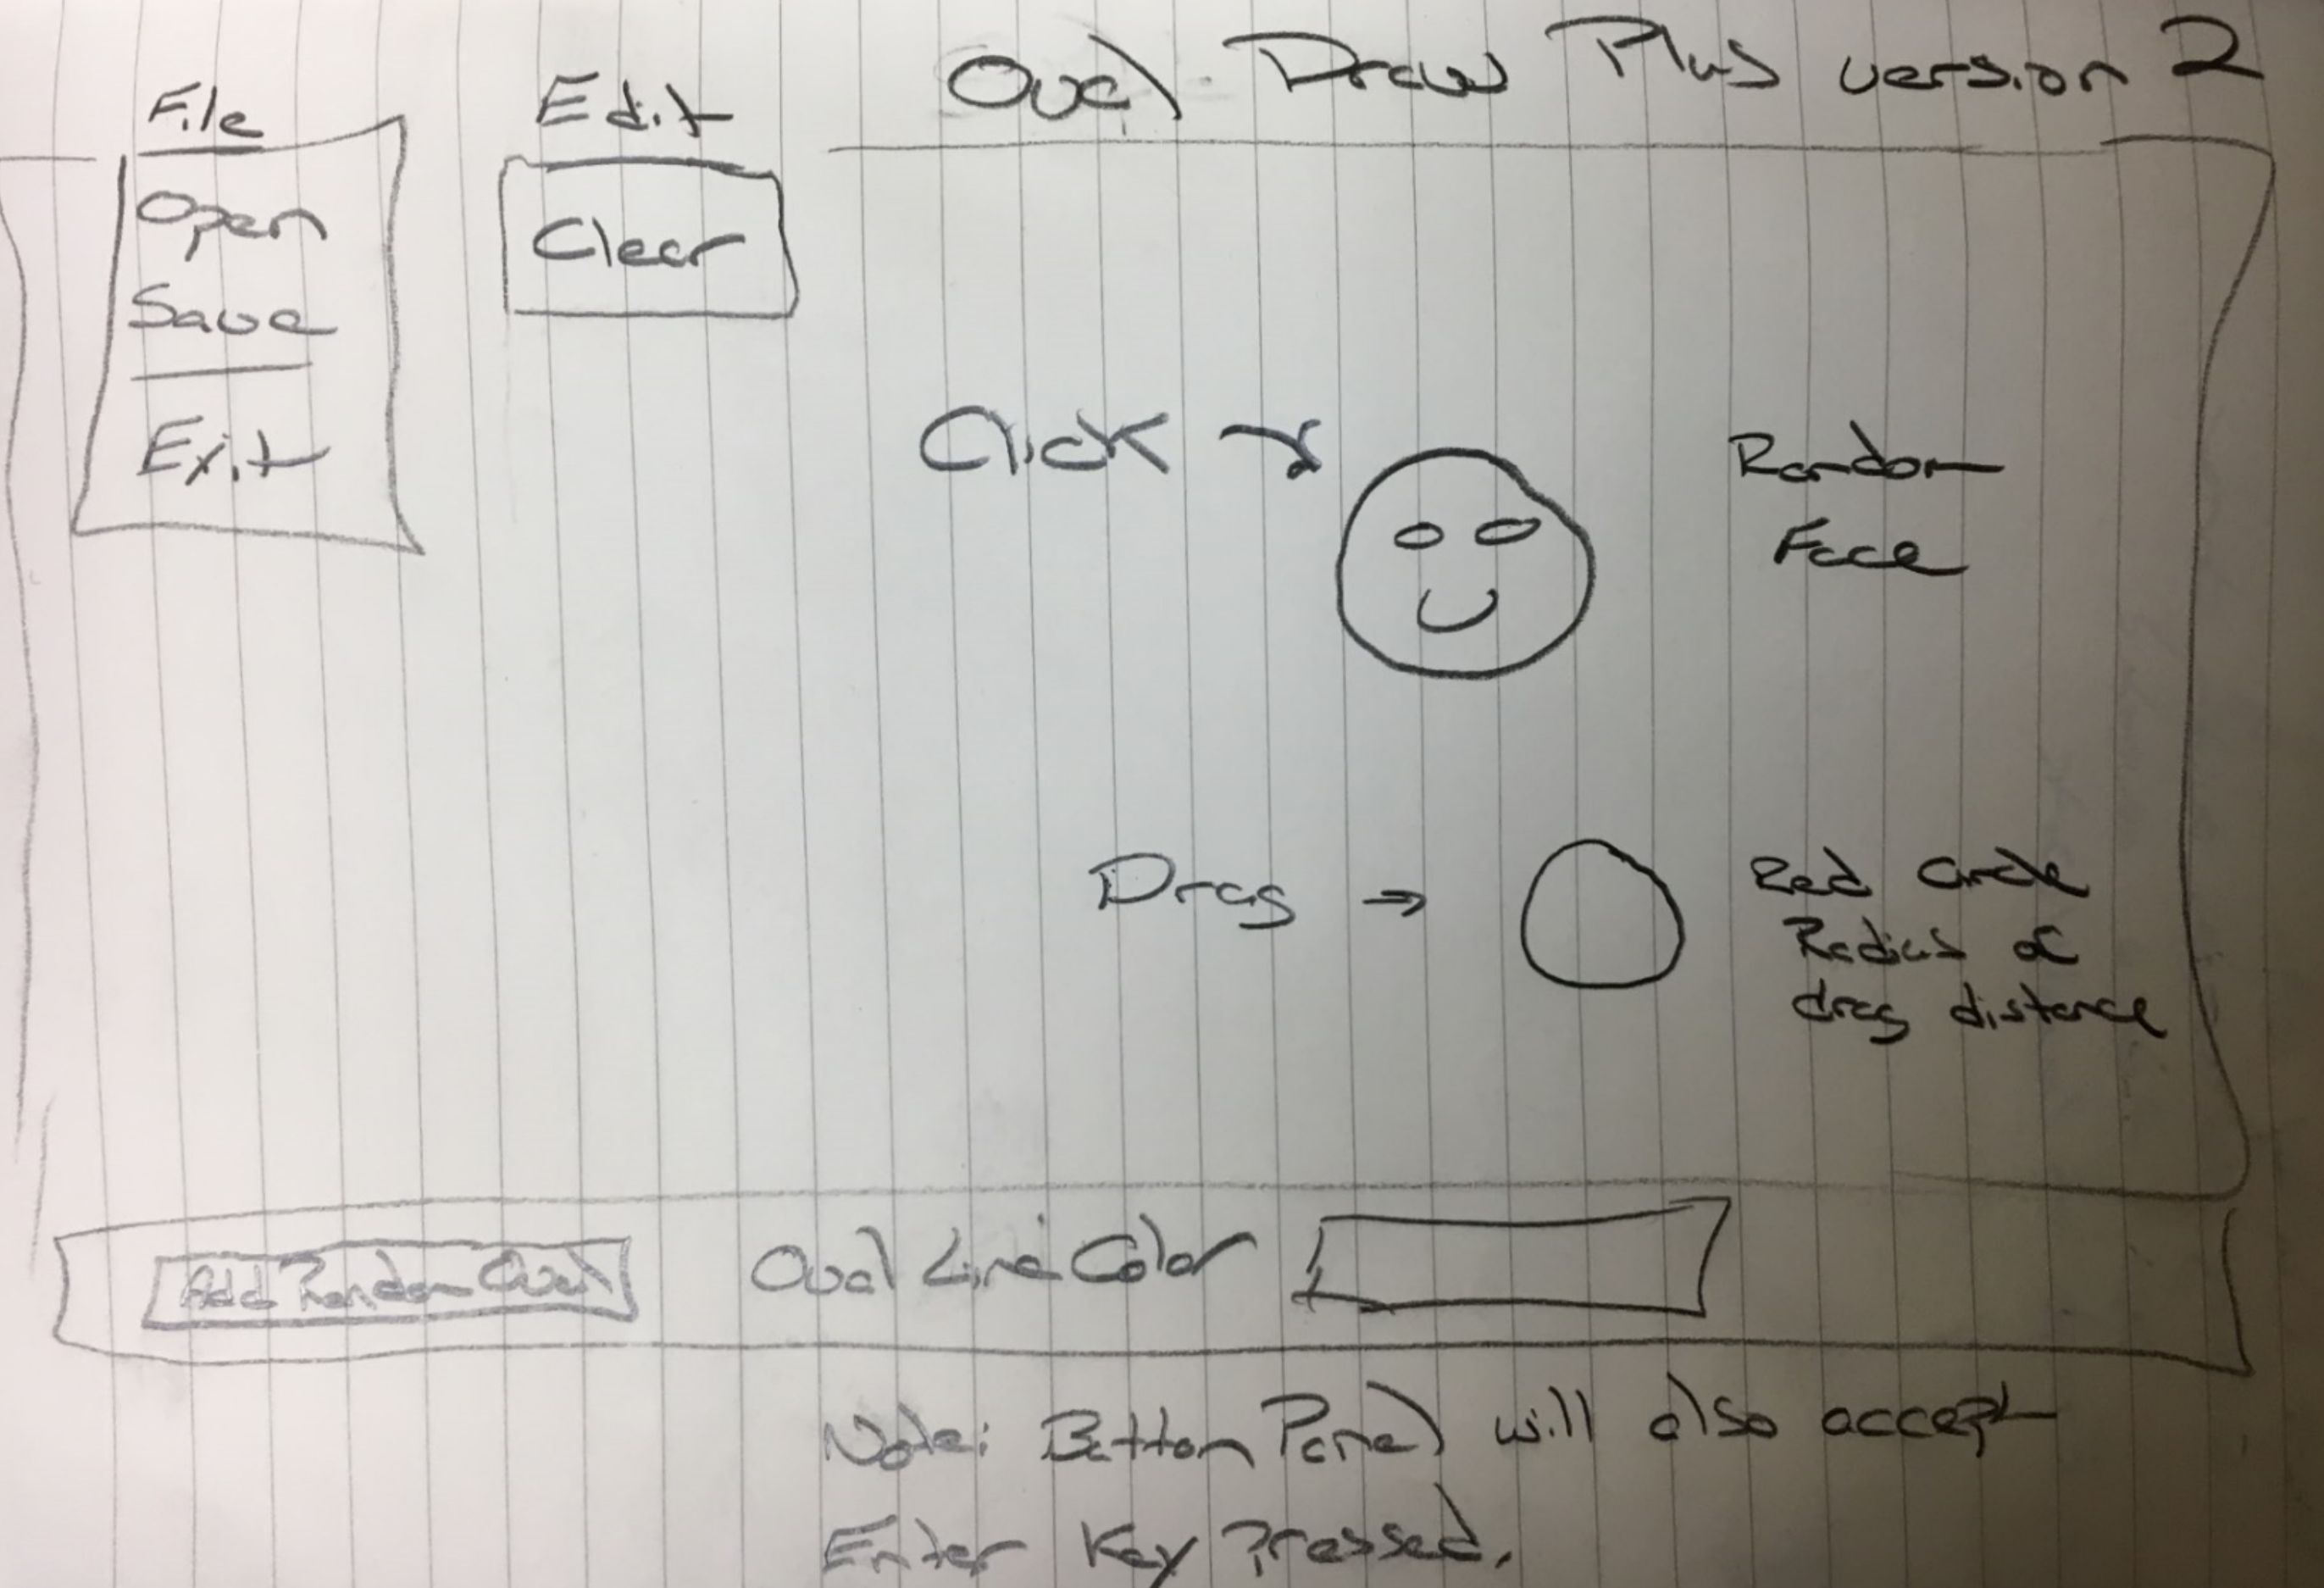 Oval Draw Plus version 2
File
Edit
Open
Save
Exit
Clear
Click
Random
Face
Drag →
Red Circle
Radius α
drag distance
Add Random Oval
Oval Line Color
Note: Button Panel will also accept
Enter Key Pressed.